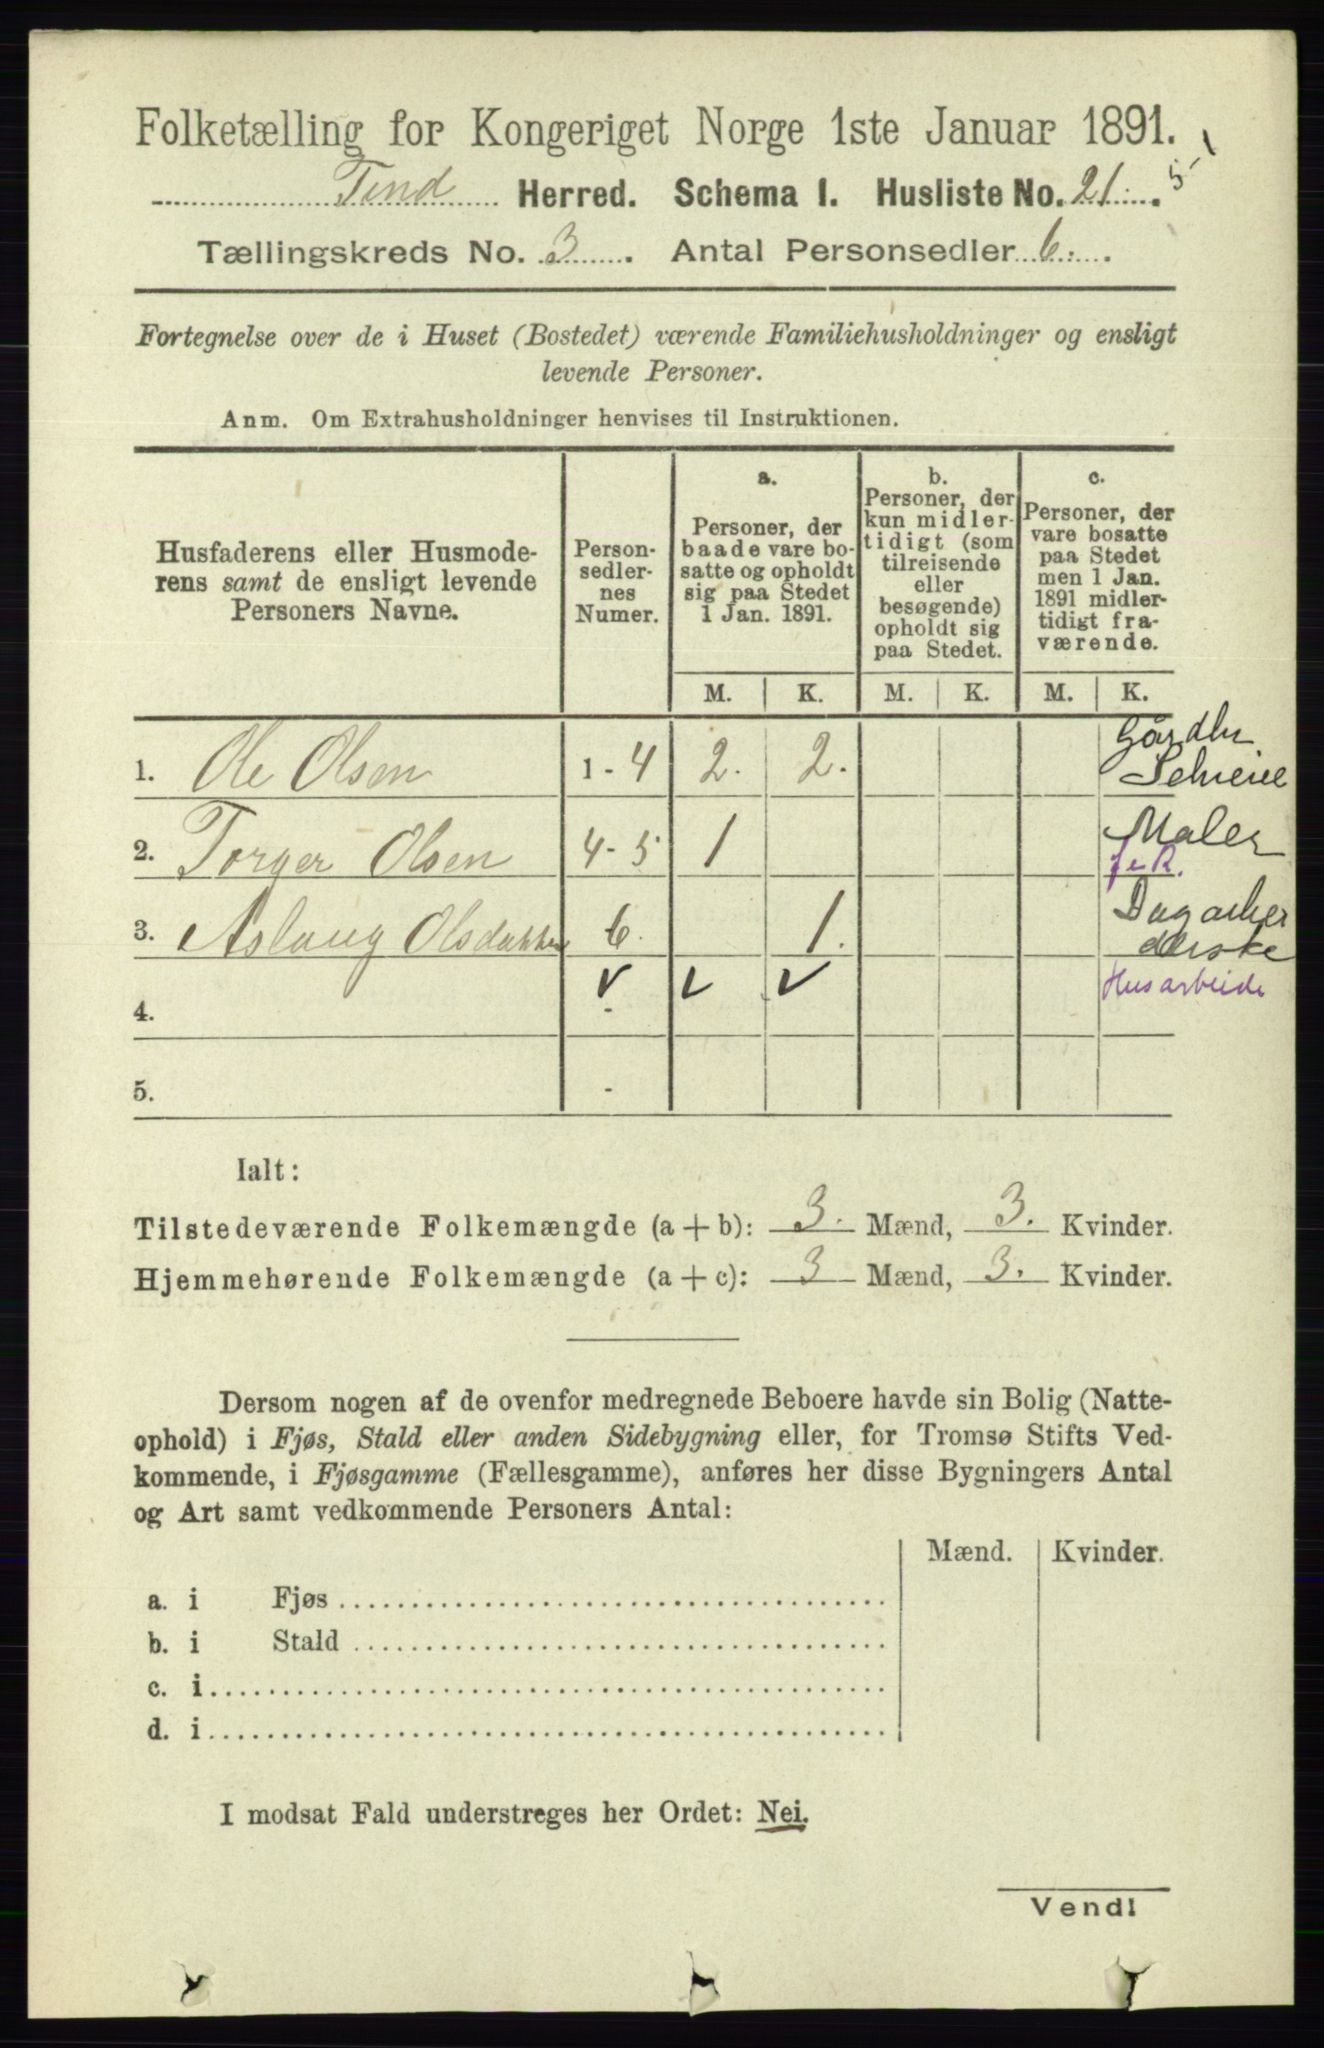 Folketælling for Kongeriget Norge 1ste Januar 1891.
Tind Herred. Schema I. Husliste No. 21.
Tællingskreds No. 3. Antal Personsedler 6.
Fortegnelse over de i Huset (Bostedet) værende Familiehusholdninger og ensligt
levende Personer.
Anm. Om Extrahusholdninger henvises til Instruktionen.
Husfaderens eller Husmode-
rens samt de ensligt levende
Personers Navne.
Person-
sedler-
nes
Numer.
a.
Personer, der
baade vare bo-
satte og opholdt
sig paa Stedet
1 Jan. 1891.
b.
Personer, der
kun midler-
tidigt (som
tilreisende
eller
besøgende)
opholdt sig
paa Stedet.
c.
Personer, der
vare bosatte
paa Stedet
men 1 Jan.
1891 midler-
tidigt fra-
værende.
M. K. M. K. M. K.
1. Ole Olsen 1 - 4 2. 2.
2. Torger Olsen 4 - 5 1 Maler
3. Aslaug Olsdatter 6. 1.
4. - Husarbeide
5. -
Ialt:
Tilstedeværende Folkemængde (a + b): 3. Mænd, 3. Kvinder.
Hjemmehørende Folkemængde (a + c): 3 Mænd, 3. Kvinder.
Dersom nogen af de ovenfor medregnede Beboere havde sin Bolig (Natte-
ophold) i Fjøs, Stald eller anden Sidebygning eller, for Tromsø Stifts Ved-
kommende, i Fjøsgamme (Fællesgamme), anføres her disse Bygningers Antal
og Art samt vedkommende Personers Antal:
Mænd. Kvinder.
a. i Fjøs
b. i Stald
c. i
d. i
I modsat Fald understreges her Ordet: Nei.
Vend!